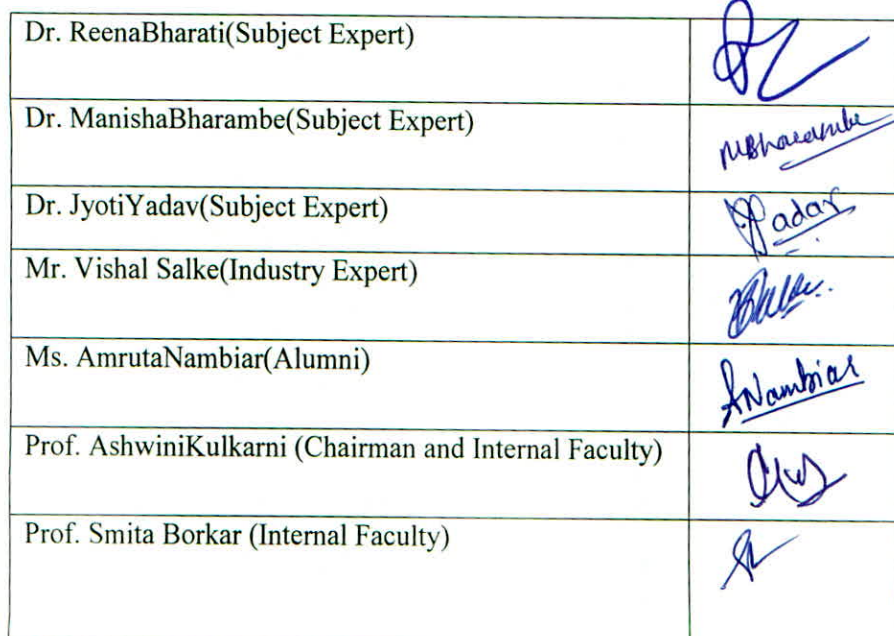 Dr. ReenaBharati(Subject Expert)
Dr. ManishaBharambe(Subject Expert)
MBharambe
Dr. JyotiYadav(Subject Expert)
JYadav
Mr. Vishal Salke(Industry Expert)
Ms. AmrutaNambiar(Alumni)
ANambiar
Prof. AshwiniKulkarni (Chairman and Internal Faculty)
Prof. Smita Borkar (Internal Faculty)